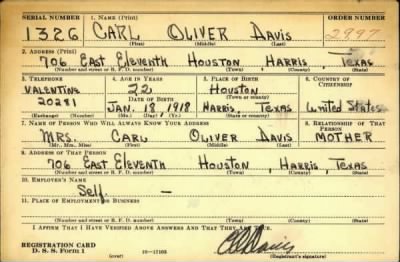 SERIAL NUMBER 1. NAME (Print) ORDER NUMBER
1326 CARL OLIVER DAVIS 2997
(First) (Middle) (Last)
2. ADDRESS (Print)
706 EAST ELEVENTH HOUSTON HARRIS, TEXAS
(Number and street or R. F. D. number) (Town) (County) (State)
3. TELEPHONE 4. AGE IN YEARS 5. PLACE OF BIRTH 6. COUNTRY OF CITIZENSHIP
VALENTINE 22 HOUSTON
DATE OF BIRTH (Town or county)
20281 JAN. 18 1918 HARRIS, TEXAS United States
(Exchange) (Number) (Mo.) (Day) (Yr.) (State or country)
7. NAME OF PERSON WHO WILL ALWAYS KNOW YOUR ADDRESS 8. RELATIONSHIP OF THAT PERSON
MRS. CARL OLIVER DAVIS MOTHER
(Mr., Mrs., Miss) (First) (Middle) (Last)
9. ADDRESS OF THAT PERSON
706 EAST ELEVENTH HOUSTON, HARRIS, TEXAS
(Number and street or R. F. D. number) (Town) (County) (State)
10. EMPLOYER'S NAME
Self. —
11. PLACE OF EMPLOYMENT OR BUSINESS
(Number and street or R. F. D. number) (Town) (County) (State)
I AFFIRM THAT I HAVE VERIFIED ABOVE ANSWERS AND THAT THEY ARE TRUE.
REGISTRATION CARD
D. S. S. Form 1 16—17105
(over) (Registrant's signature)